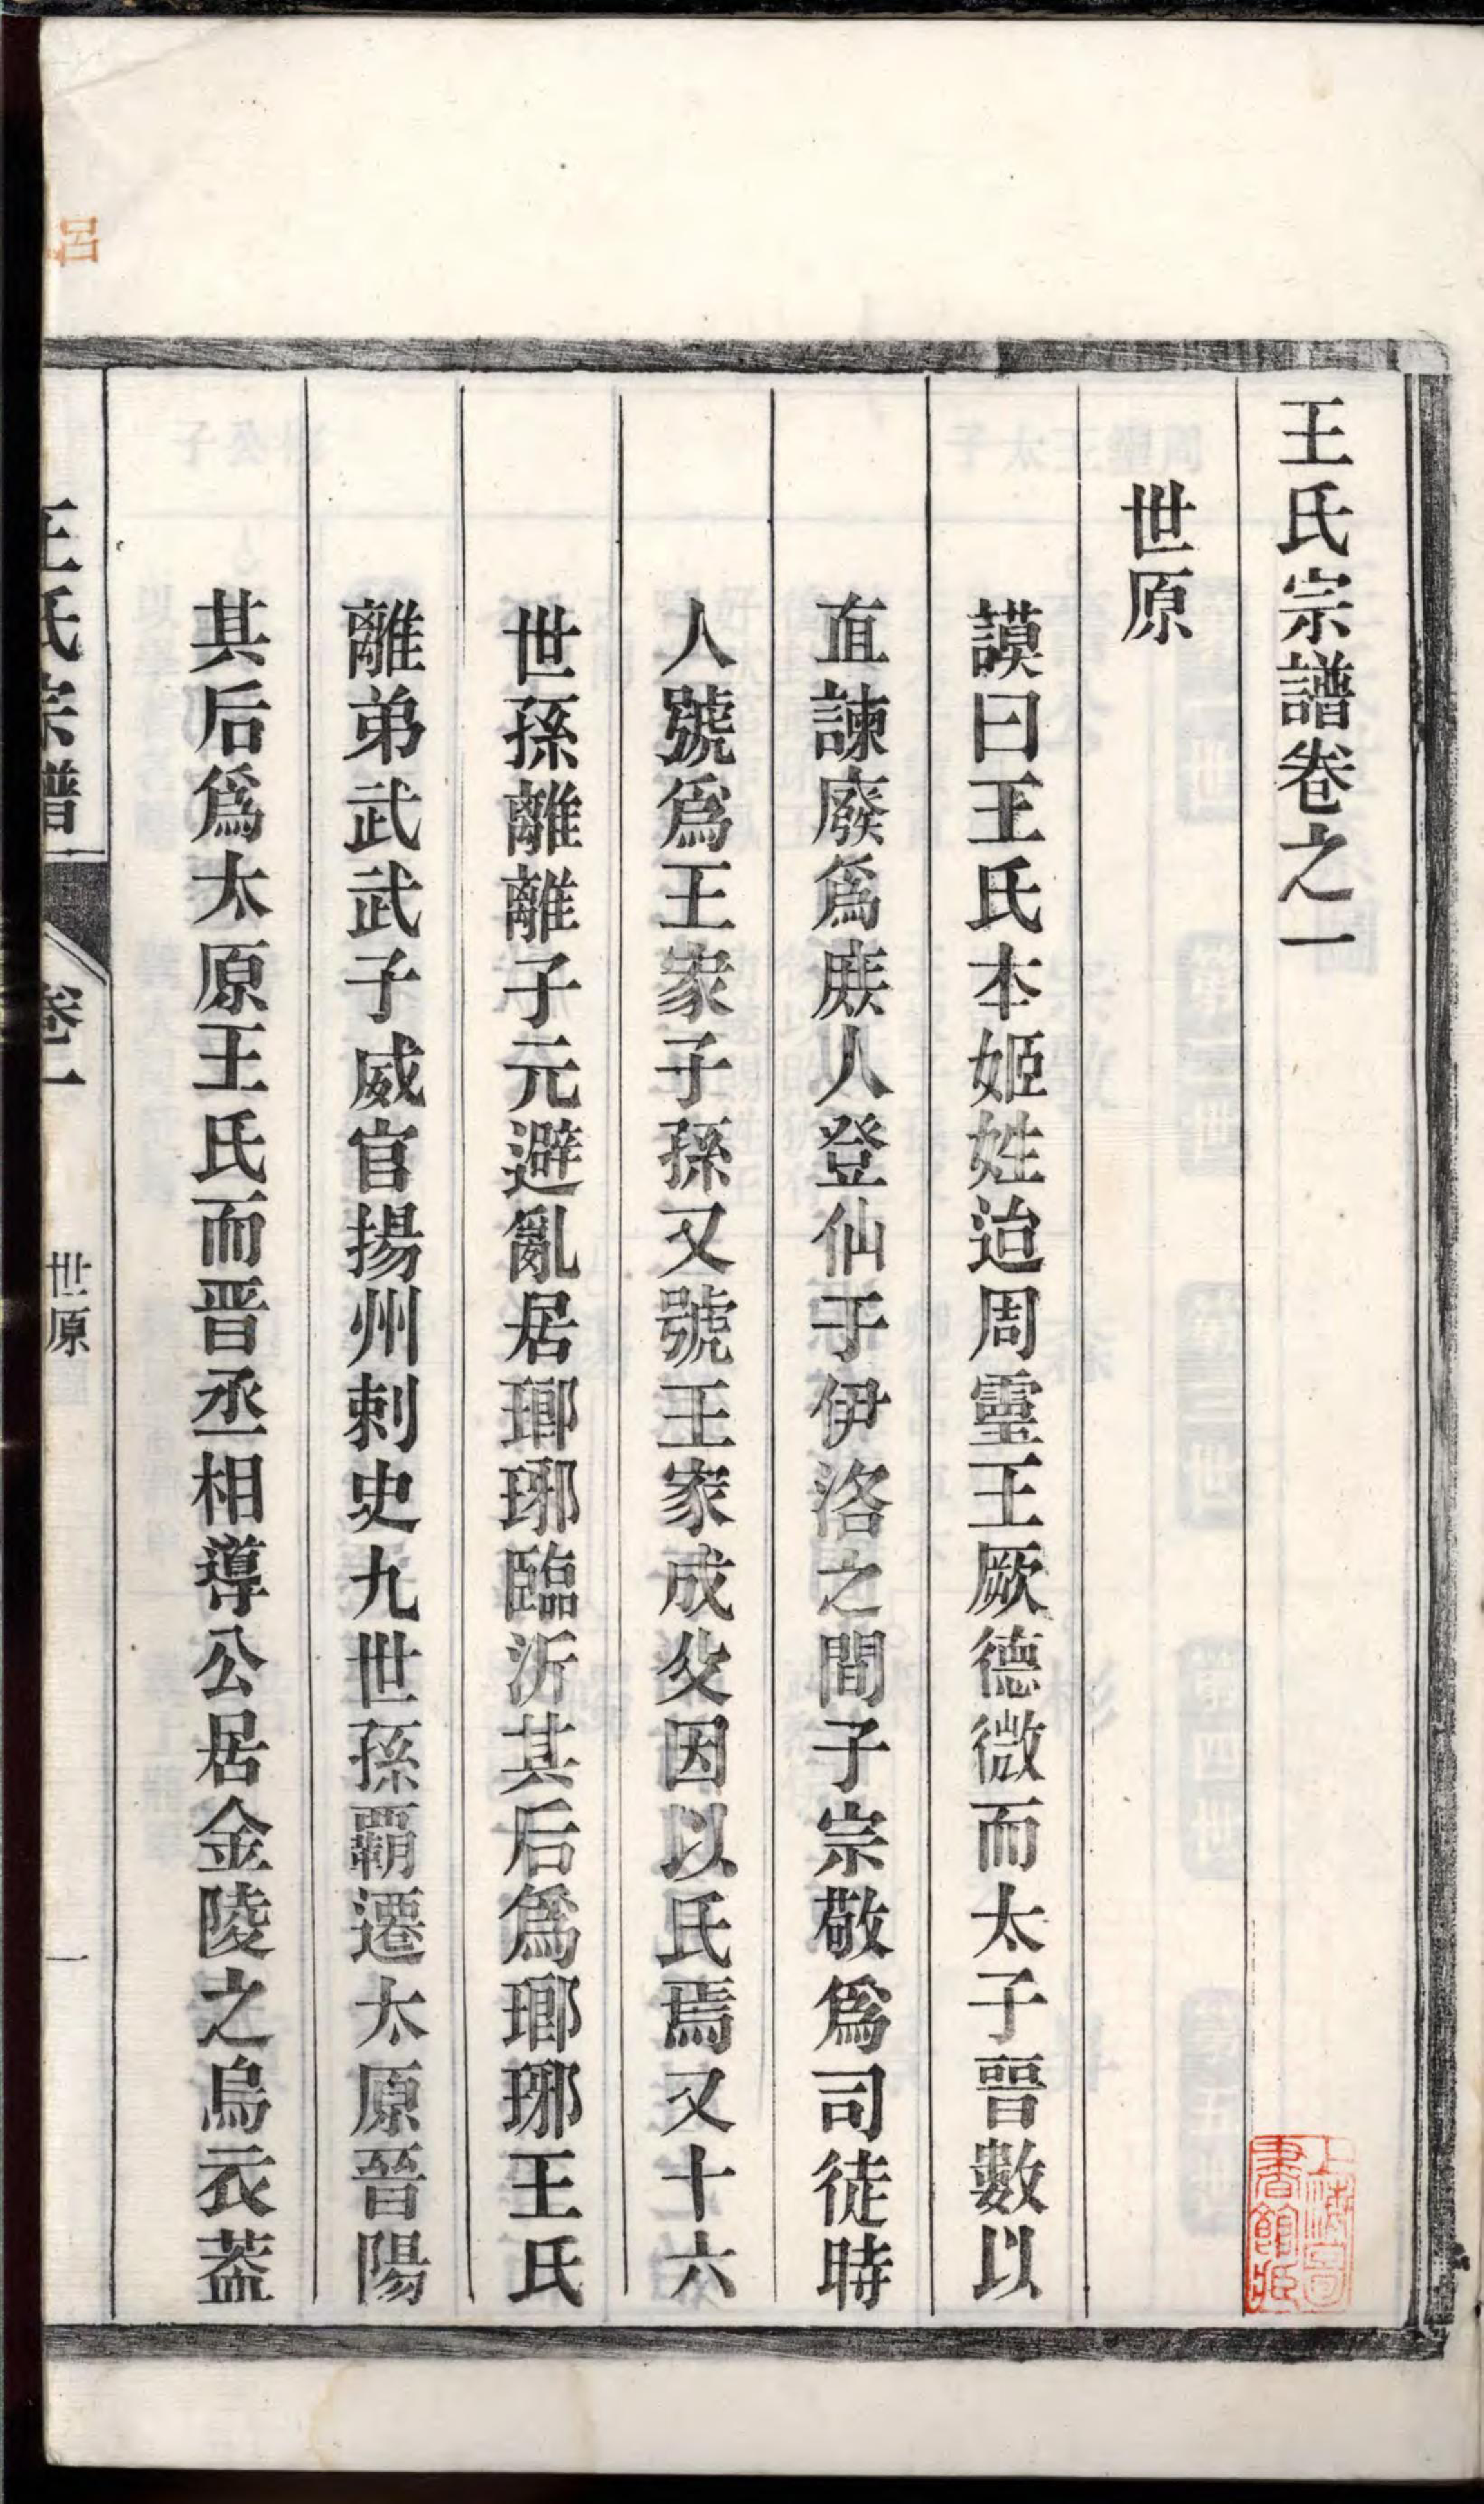 王氏宗譜卷之一
世原
謨曰王氏本姬姓迨周靈王厥德微而太子晉數以
直諫廢爲庶人登仙于伊洛之間子宗敬爲司徒時
人號爲王家子孫又號王家成父因以氏焉又十六
世孫離離子元避亂居瑯琊臨沂其后爲瑯琊王氏
離弟武武子威官揚州刺史九世孫覇遷太原晉陽
其后爲太原王氏而晋丞相導公居金陵之烏衣蓋
王氏宗譜
卷一
世原
一
呂
上海圖
書館藏